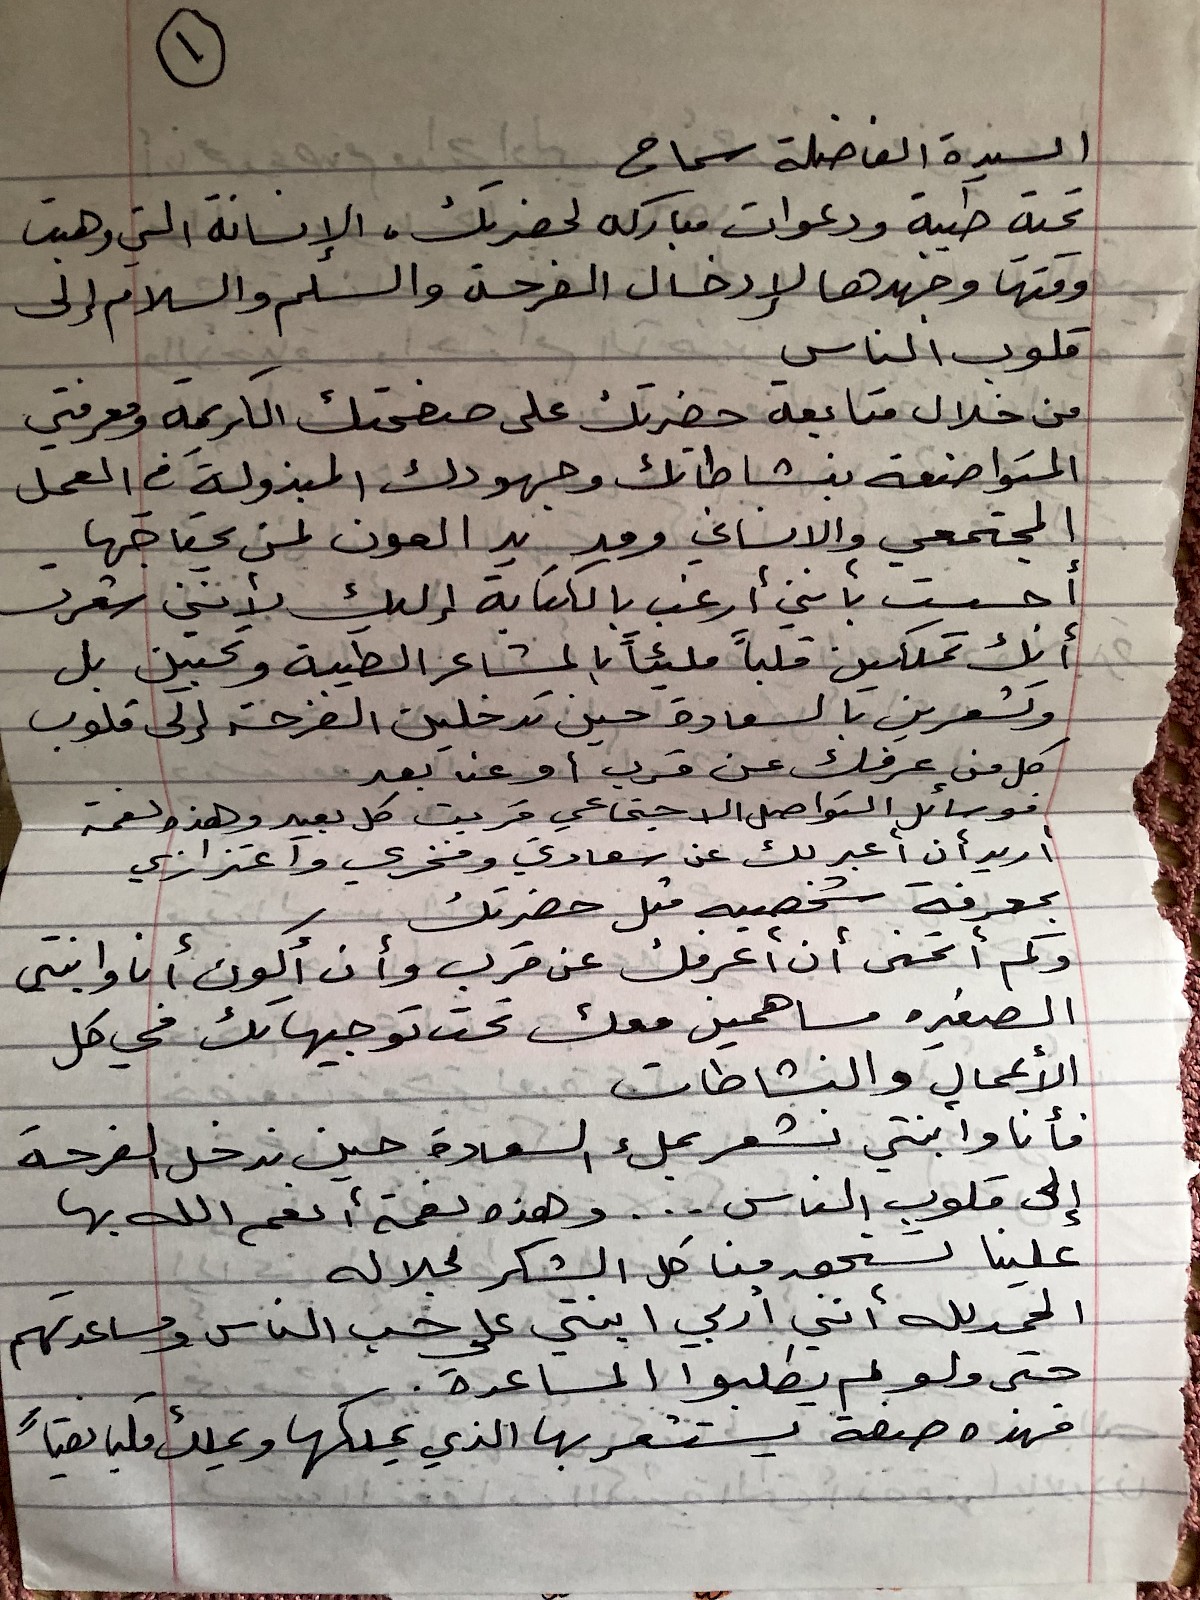 ١
السيدة الفاضلة سماح
تحية طيبة ودعوات مباركه لحضرتك، الإنسانة التي وهبت
وقتها وجهدها لإدخال الفرحة والسلم والسلام إلى
قلوب الناس
من خلال متابعة حضرتك على صفحتك الكريمة ومعرفتي
المتواضعة بنشاطاتك وجهودك المبذولة في العمل
المجتمعي والانساني ومد يد العون لمن يحتاجها
أحسست بأنني أرغب بالكتابة إليك لأنني شعرت
أنك تملكين قلباً مليئاً بالمشاعر الطيبة وتحبين بل
وتشعرين بالسعادة حين تدخلين الفرحة إلى قلوب
كل من عرفك عن قرب أو عن بعد
فوسائل التواصل الاجتماعي قربت كل بعيد وهذه نعمة
أريد أن أعبر لك عن سعادتي وفخري واعتزازي
بمعرفة شخصيه مثل حضرتك
وكم أتمنى أن أعرفك عن قرب وأن أكون أنا وابنتي
الصغيره مساهمين معك تحت توجيهاتك في كل
الأعمال والنشاطات
فأنا وابنتي نشعر بملء السعادة حين ندخل الفرحة
إلى قلوب الناس ... وهذه نعمة أنعم الله بها
علينا تستحق منا كل الشكر لجلاله
الحمدلله أنني أربي ابنتي على حب الناس ومساعدتهم
حتى ولو لم يطلبوا المساعدة.
فهذه صفة يستشعر بها الذي يملكها ويملك قلبا نقياً